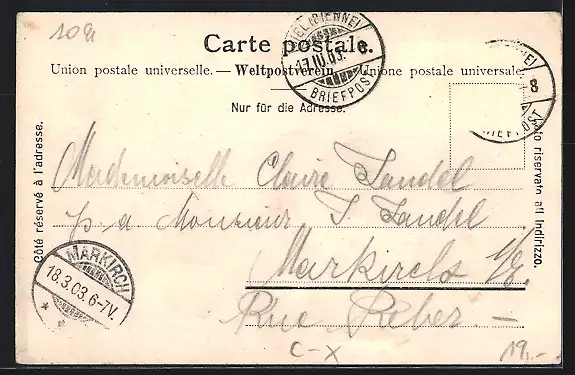 10 a
Carte postale.
BIEL (BIENNE)
17.III.03. 8
BRIEFPOST
8
Union postale universelle. — Weltpostverein. — Unione postale universale.
Nur für die Adresse.
Côté réservé à l'adresse.
Lato riservato all' indirizzo.
Mademoiselle Claire Landel
p. a Monsieur J. Landel
Markirch i/E.
Rue Reber —
MARKIRCH
18.3.03. 6-7V.
C-X
19,-